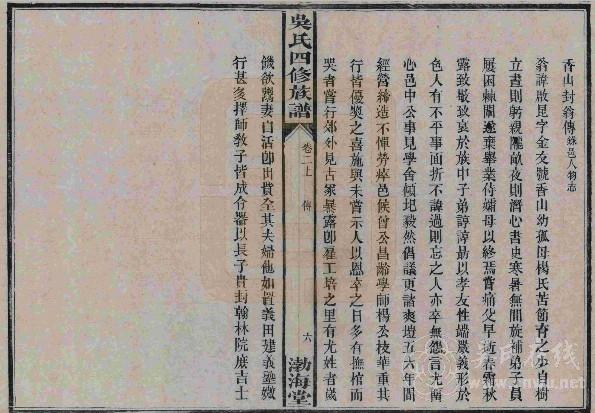 香山封翁傳 錄邑人物志
翁諱啟昆字金友號香山幼孤母楊氏苦節育之少自樹
立晝則躬親隴畝夜則潛心書史寒暑無間旋補弟子員
屢困棘闈遂棄舉業侍孀母以終焉嘗痛父早逝春霜秋
露致敬致哀於族中子弟諄諄勗以孝友性端嚴義形於
色人有不平事面折不諱過則忘之人亦卒無怨言尤關
心邑中公事見學舍傾圮毅然倡議更諸爽塏五六年間
經營締造不憚勞瘁邑侯曾公昌齡學師楊公枝華重其
行皆優奬之喜施與未嘗示人以恩卒之日多有撫棺而
哭者嘗行郊外見古冢暴露卽雇工培之里有尤姓者歲
吳氏四修族譜 卷二上 傳 六 渤海堂
饑欲鬻妻自活卽出貲全其夫婦他如置義田建義塾媺
行甚多擇師教子皆成令器以長子貴封翰林院庶吉士